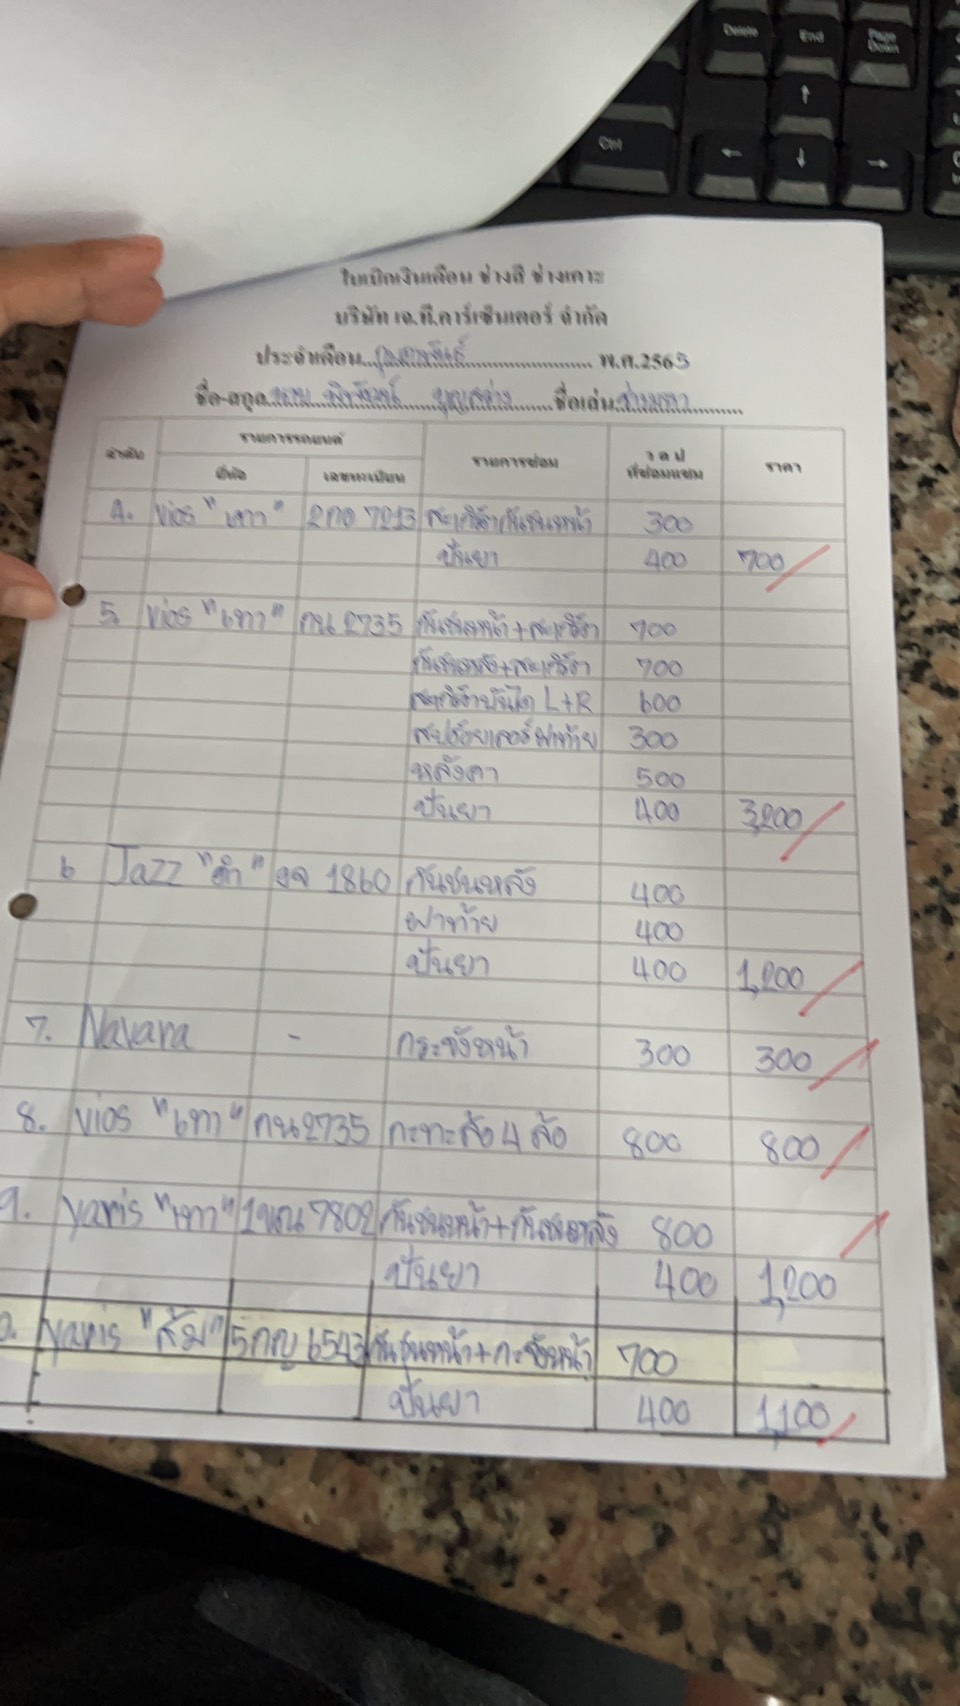 Delete End Page Down
Ctrl
ใบเบิกเงินเดือน ช่างสี ช่างเคาะ
บริษัท เจ.ที.คาร์เซ็นเตอร์ จำกัด
ประจำเดือน กุมภาพันธ์ พ.ศ.2565
ชื่อ-สกุล นาย ชื่อเล่น
ลำดับ รายการรถยนต์ รายการซ่อม ว ด ป ที่ซ่อมแซม ราคา
ยี่ห้อ เลขทะเบียน
4. Vios "เทา" 2กอ 7213 สเกิร์ตกันชนหน้า 300
ปั่นยา 400 700
5. Vios "เทา" กน 2735 กันชนหน้า+สเกิร์ต 700
กันชนหลัง+สเกิร์ต 700
สเกิร์ตบันได L+R 600
สปอยเลอร์ฝาท้าย 300
หลังคา 500
ปั่นยา 400 3,200
6 Jazz "ดำ" 1860 กันชนหลัง 400
ฝาท้าย 400
ปั่นยา 400 1,200
7. Navara - กระจังหน้า 300 300
8. Vios "เทา" กน 2735 กะทะล้อ 4 ล้อ 800 800
9. Yaris "เทา" 1ขณ 7802 กันชนหน้า+กันชนหลัง 800
ปั่นยา 400 1,200
0. Yaris "ส้ม" 5กญ 6543 กันชนหน้า+กะจังหน้า 700
ปั่นยา 400 1,100